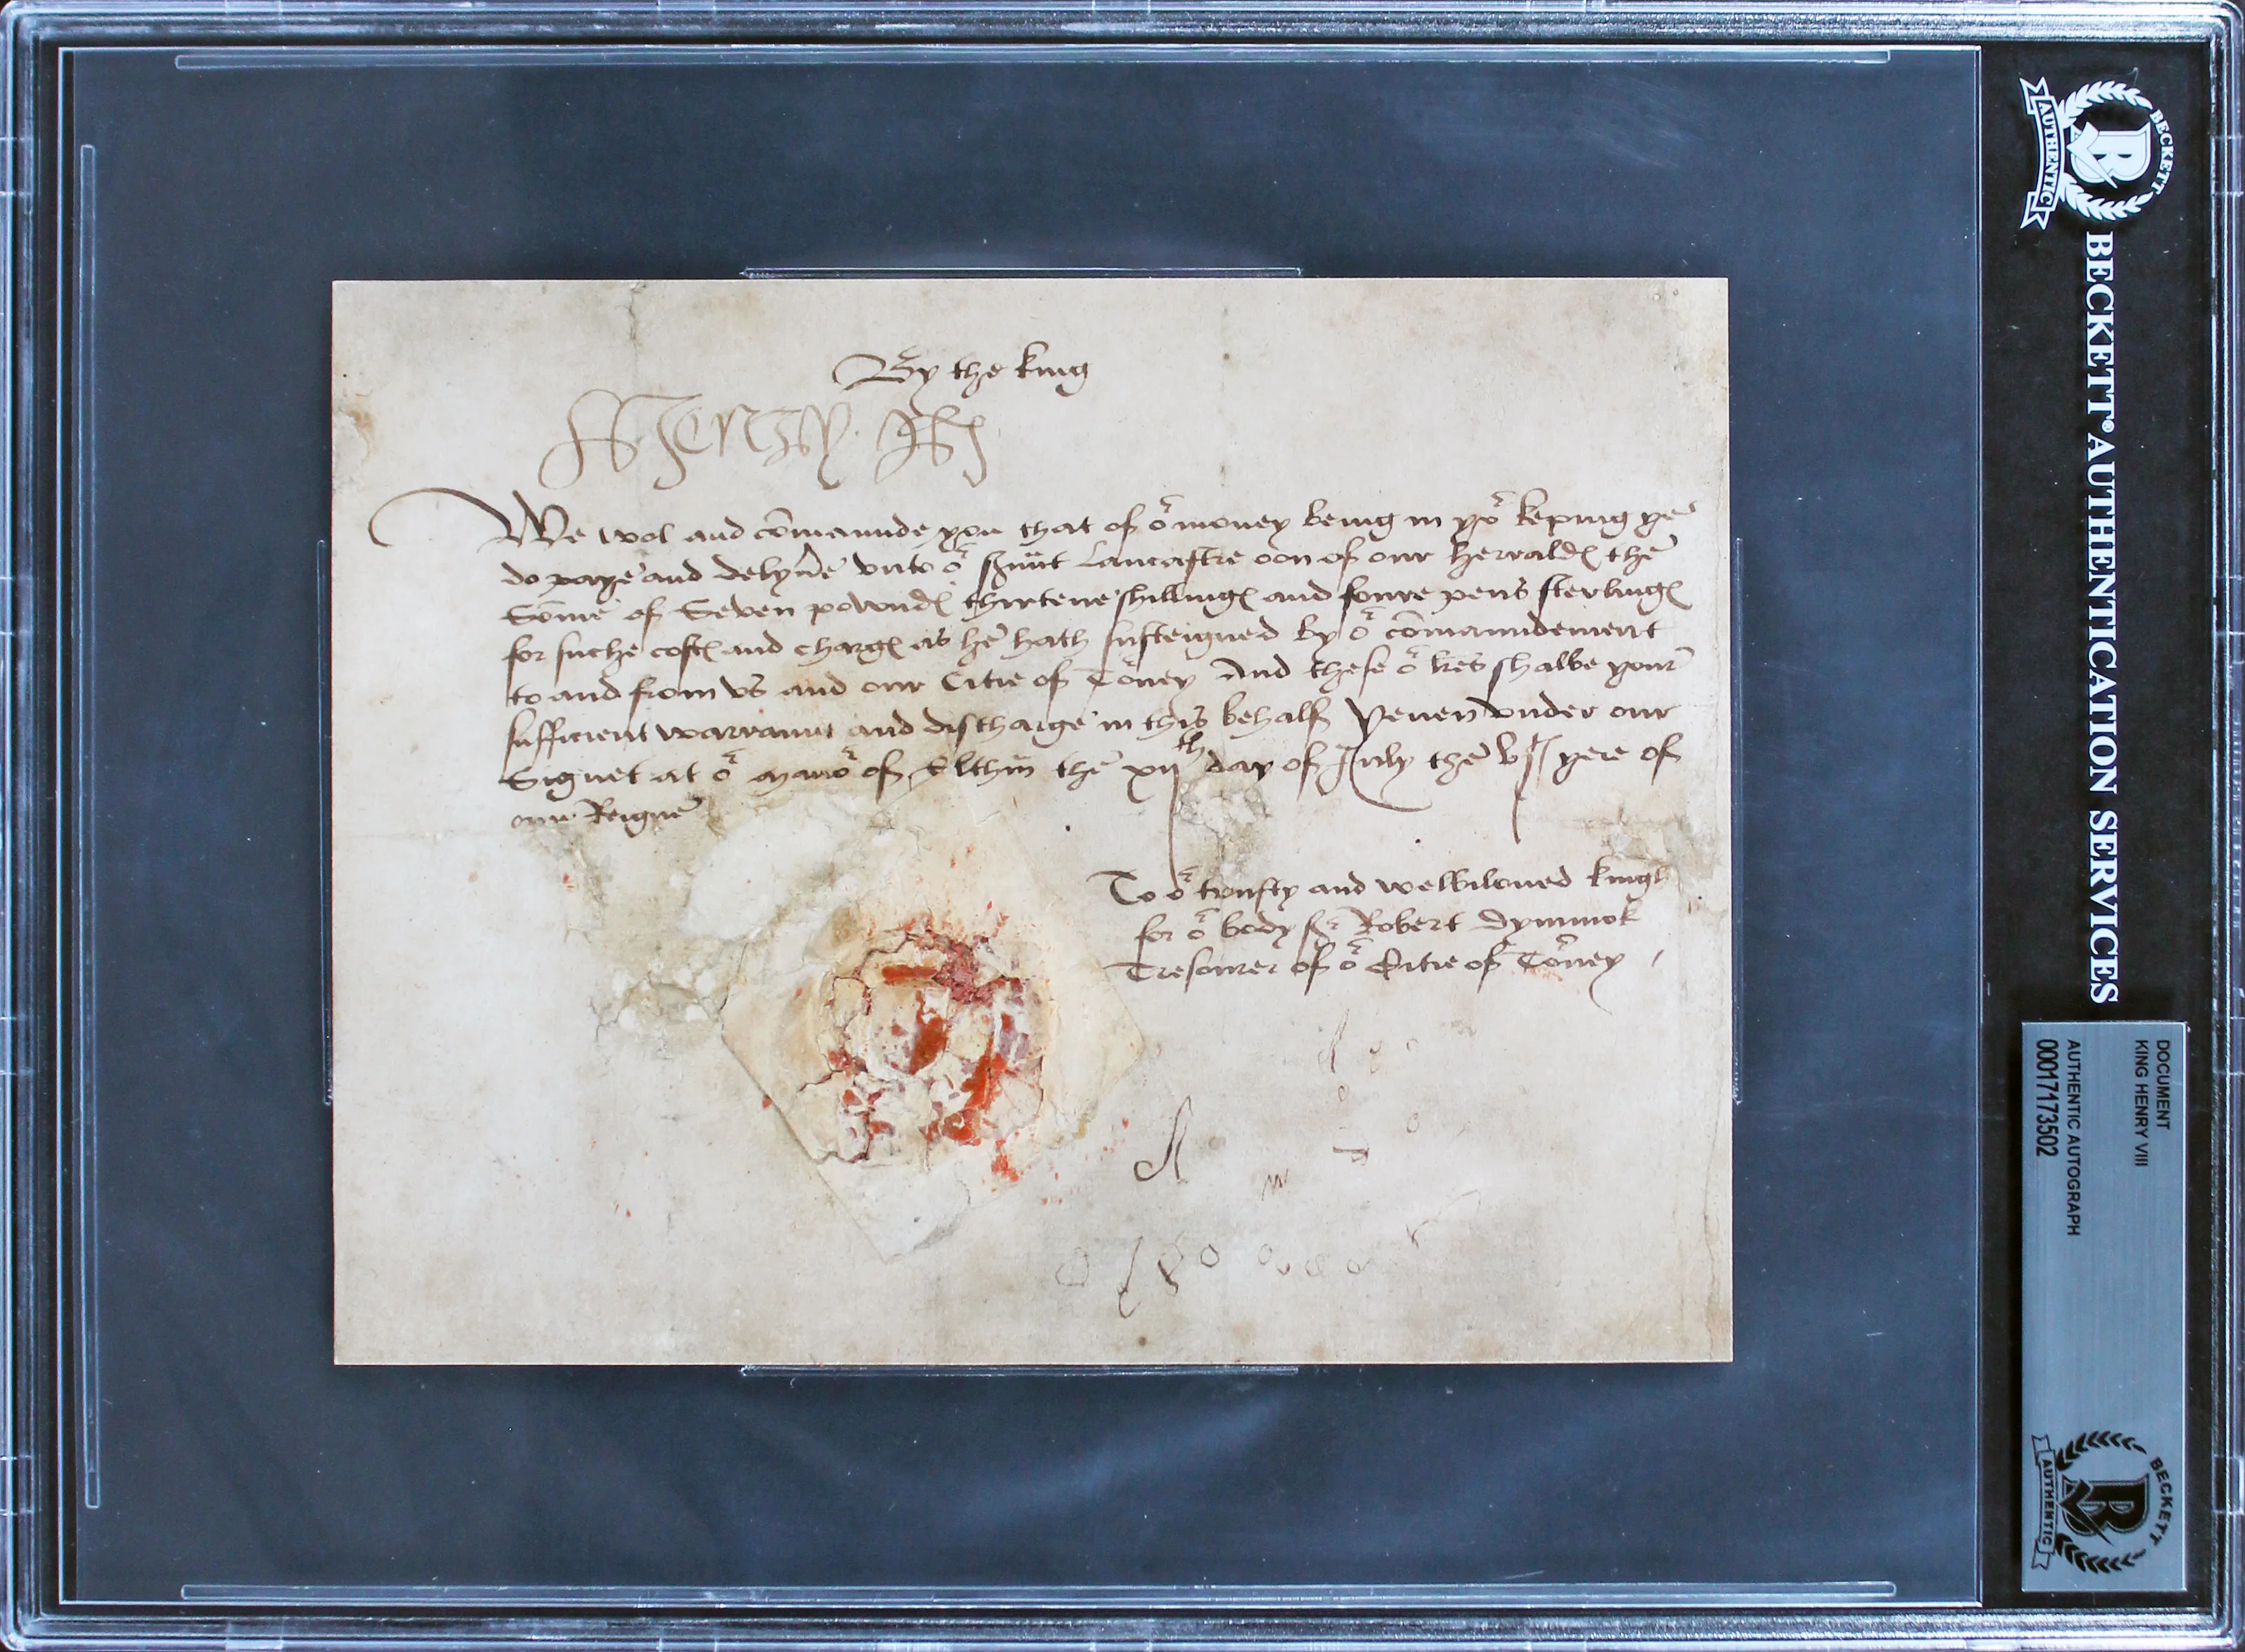 By the king
Henry R
We wol and cōmaunde you that of oʳ money being in yoʳ keping ye
do paye and delyūe vnto oʳ sʳuūt Lancastre oon of our herraldȩ the
Sōme of Seven powndȩ thirtene shillingȩ and foure pens sterlingȩ
for suche costȩ and chargȩ as he hath susteigned by oʳ cōmaundement
to and from vs and our Citie of Toʳney And these oʳ lres shalbe your
sufficient warraunt and discharge in this behalf Yeuen vnder our
Signet at oʳ manoʳ of Elthm̄ the xijᵗʰ day of July the vjᵗ yere of
our Reigne
To oʳ trusty and welbiloued knight
for oʳ body Sʳ Robert Dymmok
Tresourer of oʳ Citie of Toʳney
BECKETT
AUTHENTIC
BECKETT® AUTHENTICATION SERVICES
DOCUMENT
KING HENRY VIII
AUTHENTIC AUTOGRAPH
00017173502
BECKETT
AUTHENTIC